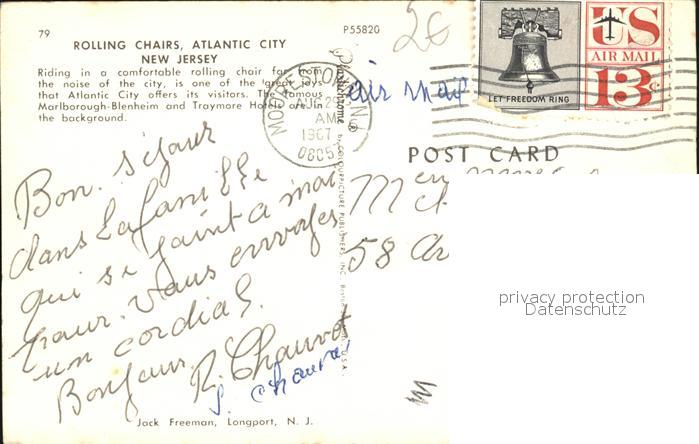 79
P55820
2€
ROLLING CHAIRS, ATLANTIC CITY
NEW JERSEY
Riding in a comfortable rolling chair far from
the noise of the city, is one of the great joys
that Atlantic City offers its visitors. The famous
Marlborough-Blenheim and Traymore Hotels are in
the background.
AUG 29
AM
1967
0805
Plastichrome
by COLOURPICTURE PUBLISHERS, INC. Boston U.S.A.
air mail
LET FREEDOM RING
US
AIR MAIL
13c
POST CARD
58
Bon séjour
dans la famille
qui se joint à moi
pour vous envoyer
un cordial
Bonjour.
R. Chauvot
privacy protection
Datenschutz
Jack Freeman, Longport, N. J.